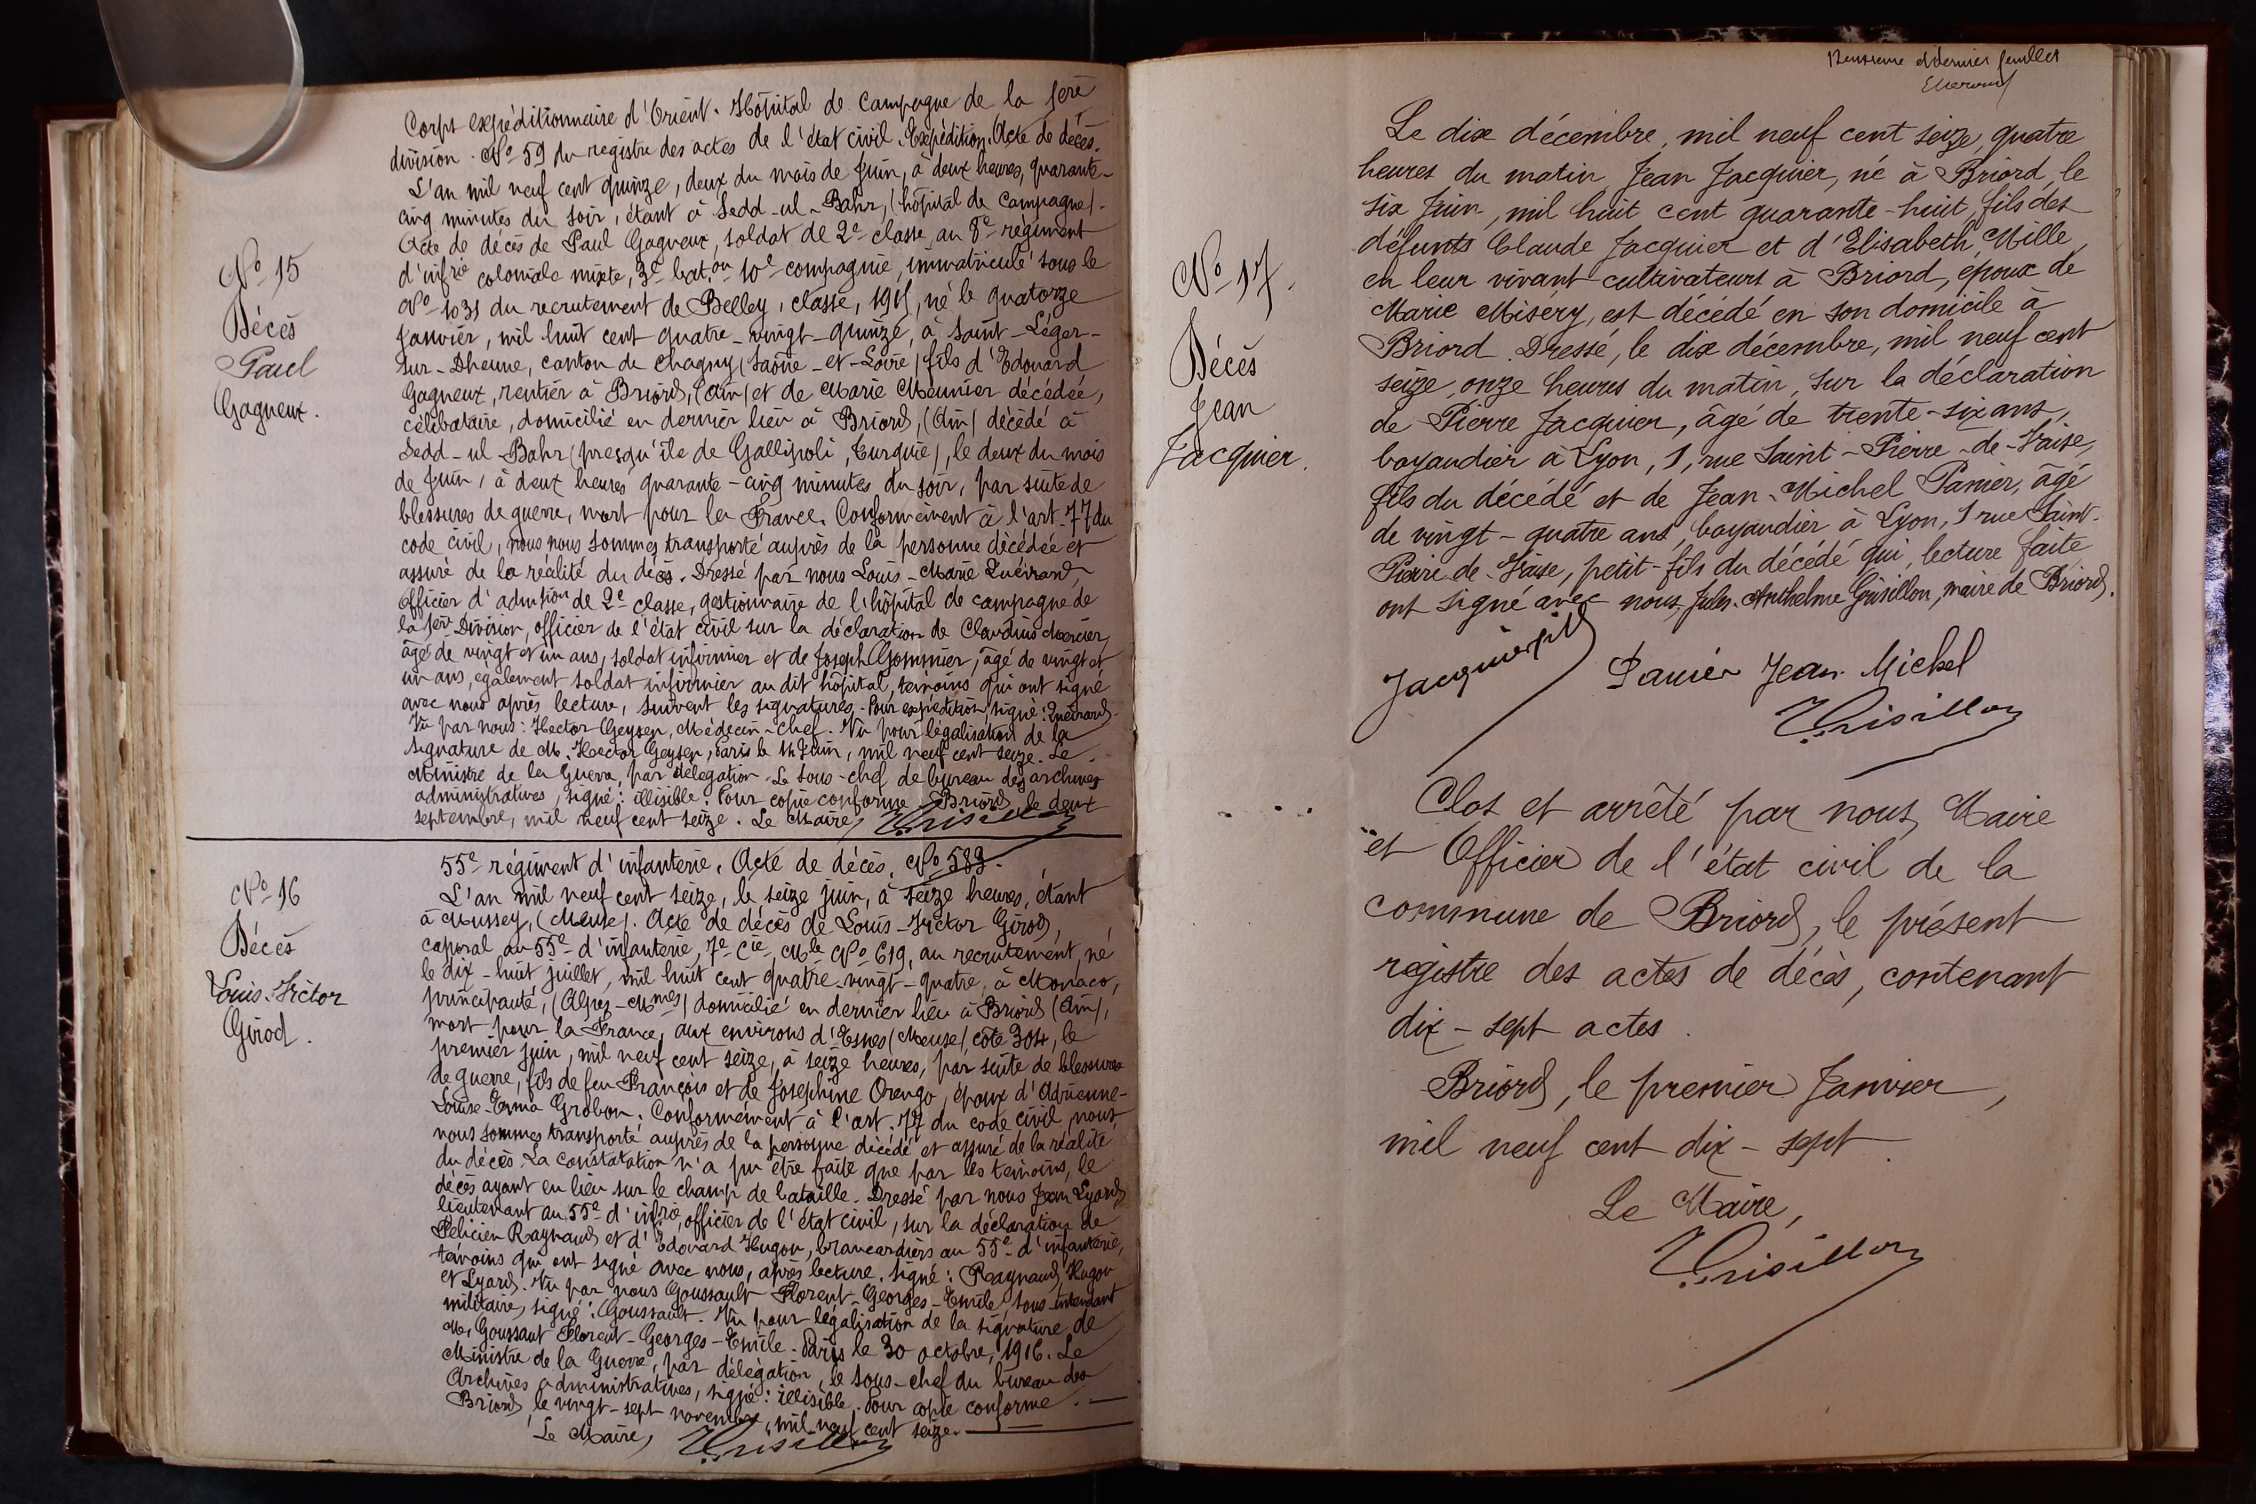 Corps expéditionnaire d'Orient. Hôpital de Campagne de la 1ère
division. No 59 du registre des actes de l'état civil. Expédition. Acte de décès.
L'an mil neuf cent quinze, deux du mois de Juin, à deux heures, quarante-
cinq minutes du soir, étant à Sedd-ul-Bahr, (hôpital de campagne).
Acte de décès de Paul Gagneux, soldat de 2e classe, au 8e régiment
d'infrie coloniale mixte, 3e bat.on 10e compagnie, immatriculé sous le
No 1031 du recrutement de Belley, classe, 1915, né le quatorze
Janvier, mil huit cent quatre-vingt-quinze, à Saint-Léger-
sur-Dheune, canton de Chagny (Saône-et-Loire) fils d'Edouard
Gagneux, rentier à Briord, (Ain) et de Marie Meunier décédée,
célibataire, domicilié en dernier lieu à Briord, (Ain) décédé à
Sedd-ul-Bahr (presqu'île de Gallipoli, Turquie), le deux du mois
de Juin, à deux heures quarante-cinq minutes du soir, par suite de
blessures de guerre, mort pour la France. Conformément à l'art. 77 du
code civil, nous nous sommes transporté auprès de la personne décédée et
assuré de la réalité du décès. Dressé par nous Louis-Marie
Officier d'admtion de 2e classe, gestionnaire de l'hôpital de campagne de
la 1ère Division, officier de l'état civil sur la déclaration de Claudius Mercier,
âgé de vingt et un ans, soldat infirmier et de Joseph Gommier, âgé de vingt et
un ans, également soldat infirmier au dit hôpital, témoins qui ont signé
avec nous après lecture, suivent les signatures. Pour expédition, signé:
Vu par nous: Hector Geysen, Médecin-chef. Vu pour légalisation de la
signature de M. Hector Geysen, Paris le Juin, mil neuf cent seize. Le
Ministre de la Guerre, par délégation. Le sous-chef de bureau des archives
administratives, signé: illisible. Pour copie conforme Briord, le deux
septembre, mil neuf cent seize. Le Maire, Grisillon
No 15
Décès
Paul
Gagneux.
55e régiment d'infanterie. Acte de décès. No 589.
L'an mil neuf cent seize, le seize juin, à seize heures, étant
à Mussey, (Meuse). Acte de décès de Louis-Victor Girod,
caporal au 55e d'infanterie, 7e Cie, Mle No 619, au recrutement, né
le dix-huit juillet, mil huit cent quatre-vingt-quatre, à Monaco,
principauté, (Alpes-Mmes) domicilié en dernier lieu à Briord (Ain),
mort pour la France, aux environs d'Esnes (Meuse) côte 304, le
premier juin, mil neuf cent seize, à seize heures, par suite de blessures
de guerre, fils de feu François et de Joséphine Orengo, époux d'Adrienne-
Louise-Erma Grobon. Conformément à l'art. 77 du code civil, nous
nous sommes transporté auprès de la personne décédé et assuré de la réalité
du décès. La constatation n'a pu être faite que par les témoins, le
décès ayant eu lieu sur le champ de bataille. Dressé par nous Jean Lyard,
lieutenant au 55e d'infrie, officier de l'état civil, sur la déclaration de
Félicien Raynaud et d'Edouard Hugon, brancardiers au 55e d'infanterie,
témoins qui ont signé avec nous, après lecture. signé: Raynaud, Hugon
et Lyard. Vu par nous Goussault Florent-Georges-Emile, sous-intendant
militaire, signé: Goussault. Vu pour légalisation de la signature de
M. Goussaut Florent-Georges-Emile. Paris le 30 octobre, 1916. Le
Ministre de la Guerre, par délégation, le sous-chef du bureau des
Archives administratives, signé: illisible. Pour copie conforme.
Briord, le vingt-sept novembre, mil neuf cent seize.
Le Maire, Grisillon
No 16
Décès
Louis-Victor
Girod.
Deuxième et dernier feuillet
Le dix décembre, mil neuf cent seize, quatre
heures du matin Jean Jacquier, né à Briord, le
six Juin, mil huit cent quarante-huit, fils des
défunts Claude Jacquier et d'Elisabeth Mille,
en leur vivant cultivateurs à Briord, époux de
Marie Miséry, est décédé en son domicile à
Briord. Dressé, le dix décembre, mil neuf cent
seize, onze heures du matin, sur la déclaration
de Pierre Jacquier, âgé de trente-six ans,
boyaudier à Lyon, 1, rue Saint-Pierre-de-Vaise,
fils du décédé et de Jean-Michel Panier, âgé
de vingt-quatre ans, boyaudier à Lyon, 1 rue Saint-
Pierre de-Vaise, petit-fils du décédé qui, lecture faite
ont signé avec nous, Jules-Anthelme Grisillon, maire de Briord.
Jacquier fils
Panier Jean Michel
Grisillon
No 17.
Décès
Jean
Jacquier.
Clos et arrêté par nous, Maire
et Officier de l'état civil de la
commune de Briord, le présent
registre des actes de décès, contenant
dix-sept actes.
Briord, le premier Janvier,
mil neuf cent dix-sept.
Le Maire,
Grisillon